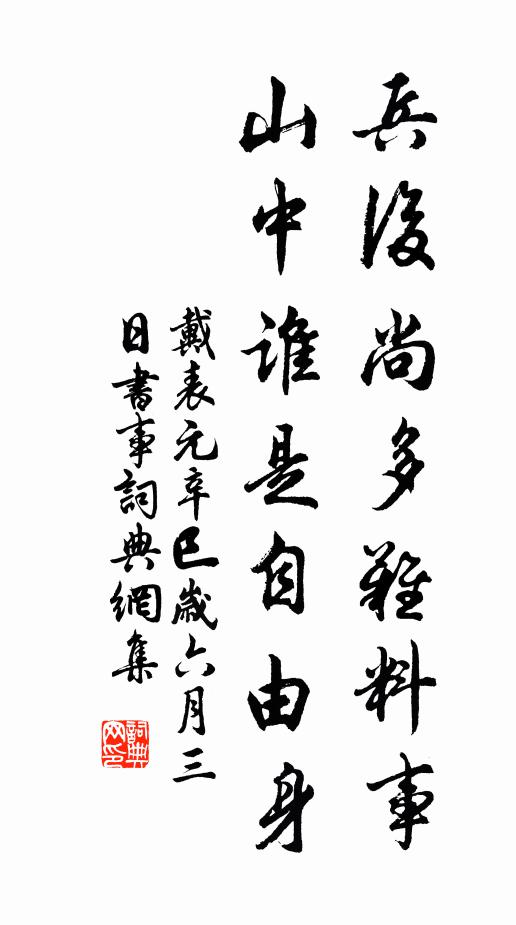 兵後尚多難料事
山中誰是自由身
戴表元辛巳歲六月三
日書事詞典網集
詞典
网印